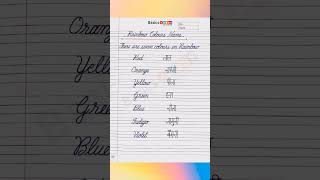 Rainbow Colours Name
There are seven colours in Rainbow
Red लाल
Orange नारंगी
Yellow पीला
Green हरा
Blue नीला
Indigo जामुनी
Violet बैंगनी
Orange
Yellow
Green
Blue